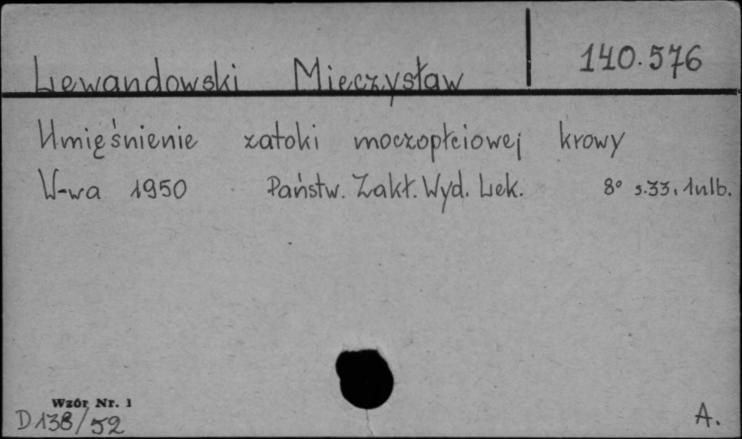 Lewandowski Mieczysław 140.576
Umięśnienie zatoki moczopłciowej krowy
W-wa 1950 Państw. Zakł. Wyd. Lek. 8° s.33, 1nlb.
Wzór Nr. 1
D 138/52 A.